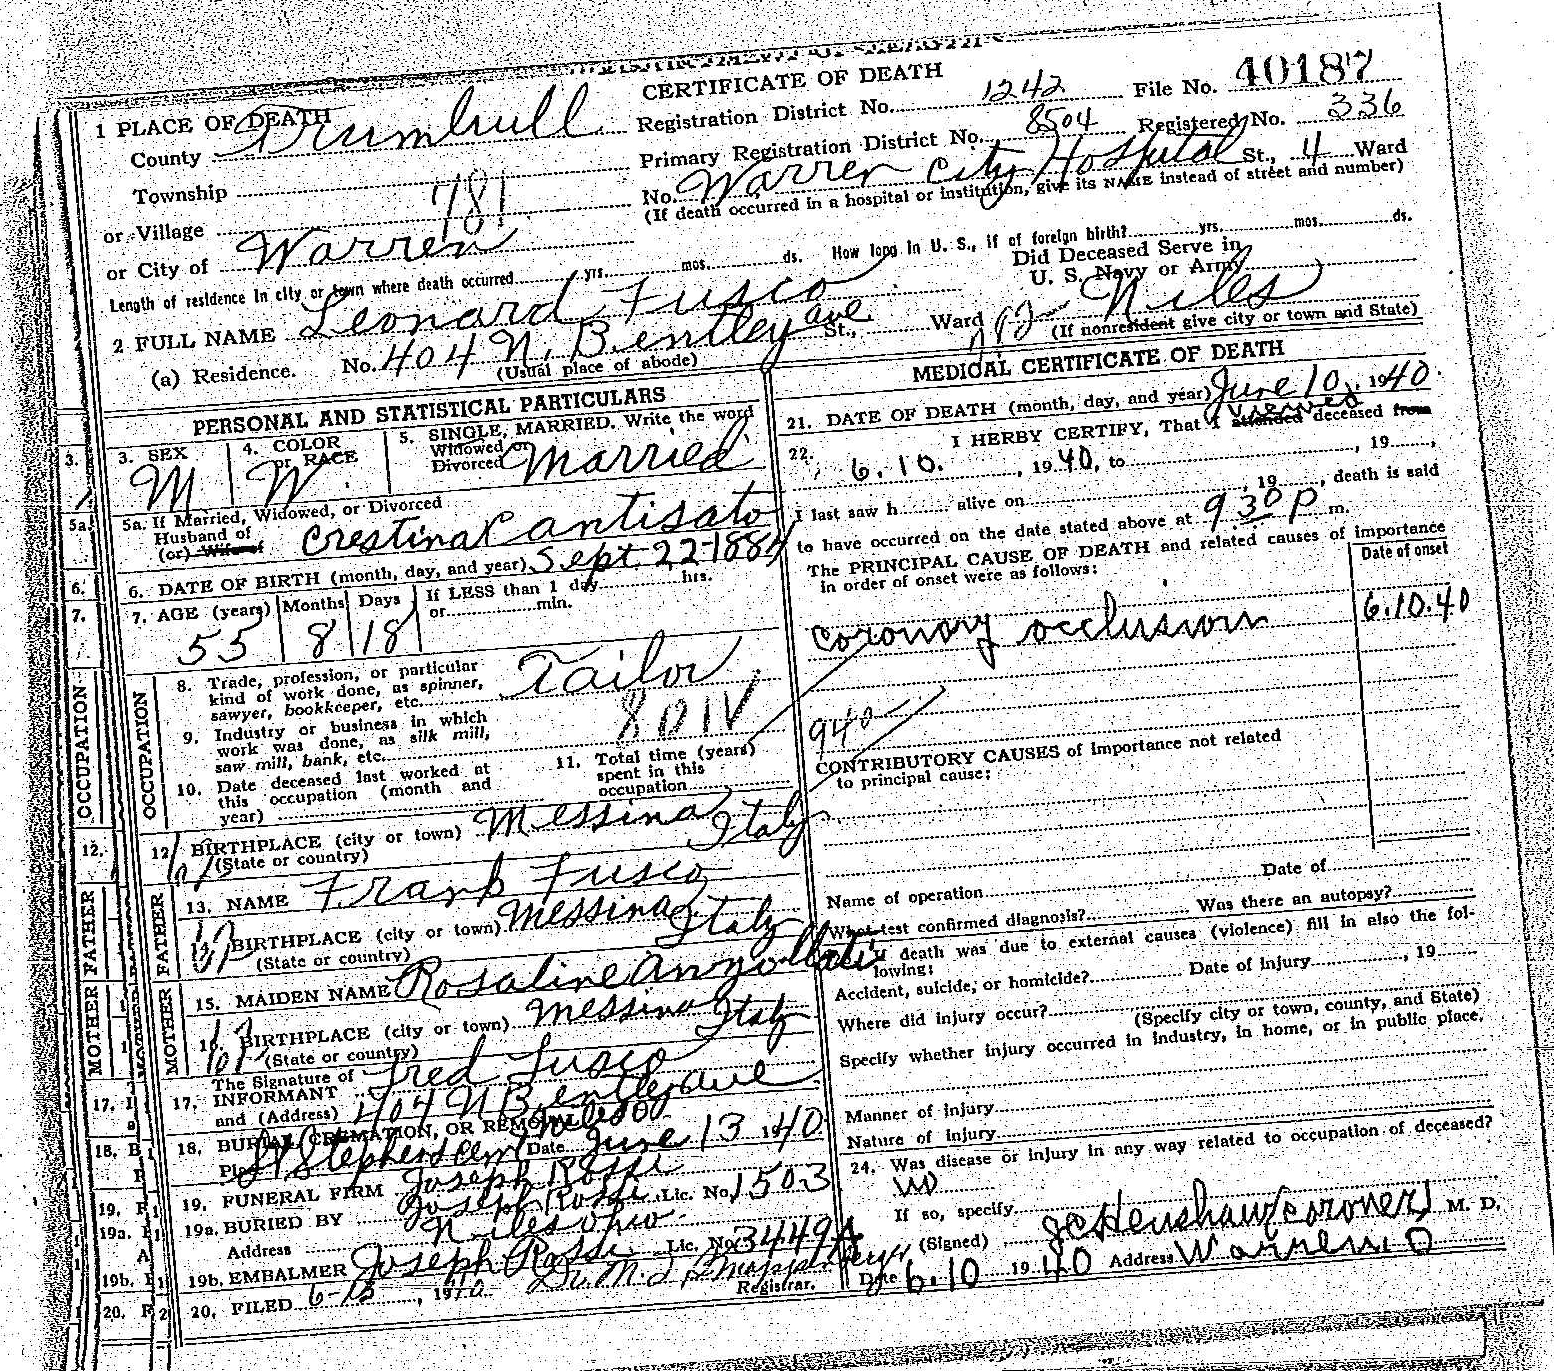 CERTIFICATE OF DEATH
1 PLACE OF DEATH
County Trumbull
Registration District No. 1242 File No. 40187
Township
Primary Registration District No. 8504 Registered No. 336
or Village 781
No. Warren City Hospital St., 4 Ward
(If death occurred in a hospital or institution, give its NAME instead of street and number)
or City of Warren
Length of residence in city or town where death occurred yrs. mos. ds. How long in U. S., if of foreign birth? yrs. mos. ds.
Did Deceased Serve in
U. S. Navy or Army
2 FULL NAME Leonard Fusco
(a) Residence. No. 404 N. Bentley ave St., Ward Niles
(Usual place of abode) (If nonresident give city or town and State)
PERSONAL AND STATISTICAL PARTICULARS
3. SEX M
4. COLOR or RACE W
5. SINGLE, MARRIED. Write the word
Widowed or
Divorced Married
5a. If Married, Widowed, or Divorced
Husband of
(or) Wife of Crestina Cantisato
6. DATE OF BIRTH (month, day, and year) Sept. 22-1884
7. AGE (years) 55 Months 8 Days 18 If LESS than 1 day hrs.
or min.
8. Trade, profession, or particular
kind of work done, as spinner,
sawyer, bookkeeper, etc. Tailor
9. Industry or business in which
work was done, as silk mill,
saw mill, bank, etc.
10. Date deceased last worked at
this occupation (month and
year)
11. Total time (years)
spent in this
occupation
OCCUPATION
OCCUPATION
12. BIRTHPLACE (city or town) Messina
(State or country) Italy
FATHER
FATHER
13. NAME Frank Fusco
14. BIRTHPLACE (city or town) Messina
(State or country) Italy
MOTHER
MOTHER
15. MAIDEN NAME Rosaline
16. BIRTHPLACE (city or town) Messina
(State or country) Italy
17. The Signature of
INFORMANT Fred Fusco
and (Address) 404 N Bentley ave
Niles O
18. BURIAL, CREMATION, OR REMOVAL
Place St Stephens Cem Date June 13 1940
19. FUNERAL FIRM Joseph Rossi
19a. BURIED BY Joseph Rossi Lic. No. 1503
Address Niles Ohio
19b. EMBALMER Joseph Rossi Lic. No. 3449A
20. FILED 6-13, 1940 Dr. M.
Registrar.
MEDICAL CERTIFICATE OF DEATH
21. DATE OF DEATH (month, day, and year) June 10, 1940.
22. I HERBY CERTIFY, That I attended viewed deceased from
6.10., 1940, to , 19 ,
I last saw h alive on , 19 , death is said
to have occurred on the date stated above at 930 P m.
The PRINCIPAL CAUSE OF DEATH and related causes of importance
in order of onset were as follows:
Date of onset
coronary occlusion 6.10.40
940
CONTRIBUTORY CAUSES of importance not related
to principal cause:
Name of operation Date of
What test confirmed diagnosis? Was there an autopsy?
death was due to external causes (violence) fill in also the fol-
lowing:
Accident, suicide, or homicide? Date of injury , 19
Where did injury occur?
(Specify city or town, county, and State)
Specify whether injury occurred in industry, in home, or in public place.
Manner of injury
Nature of injury
24. Was disease or injury in any way related to occupation of deceased?
no
If so, specify
(Signed) JC Henshaw (coroner) M. D.
Date 6.10 1940 Address Warren, O